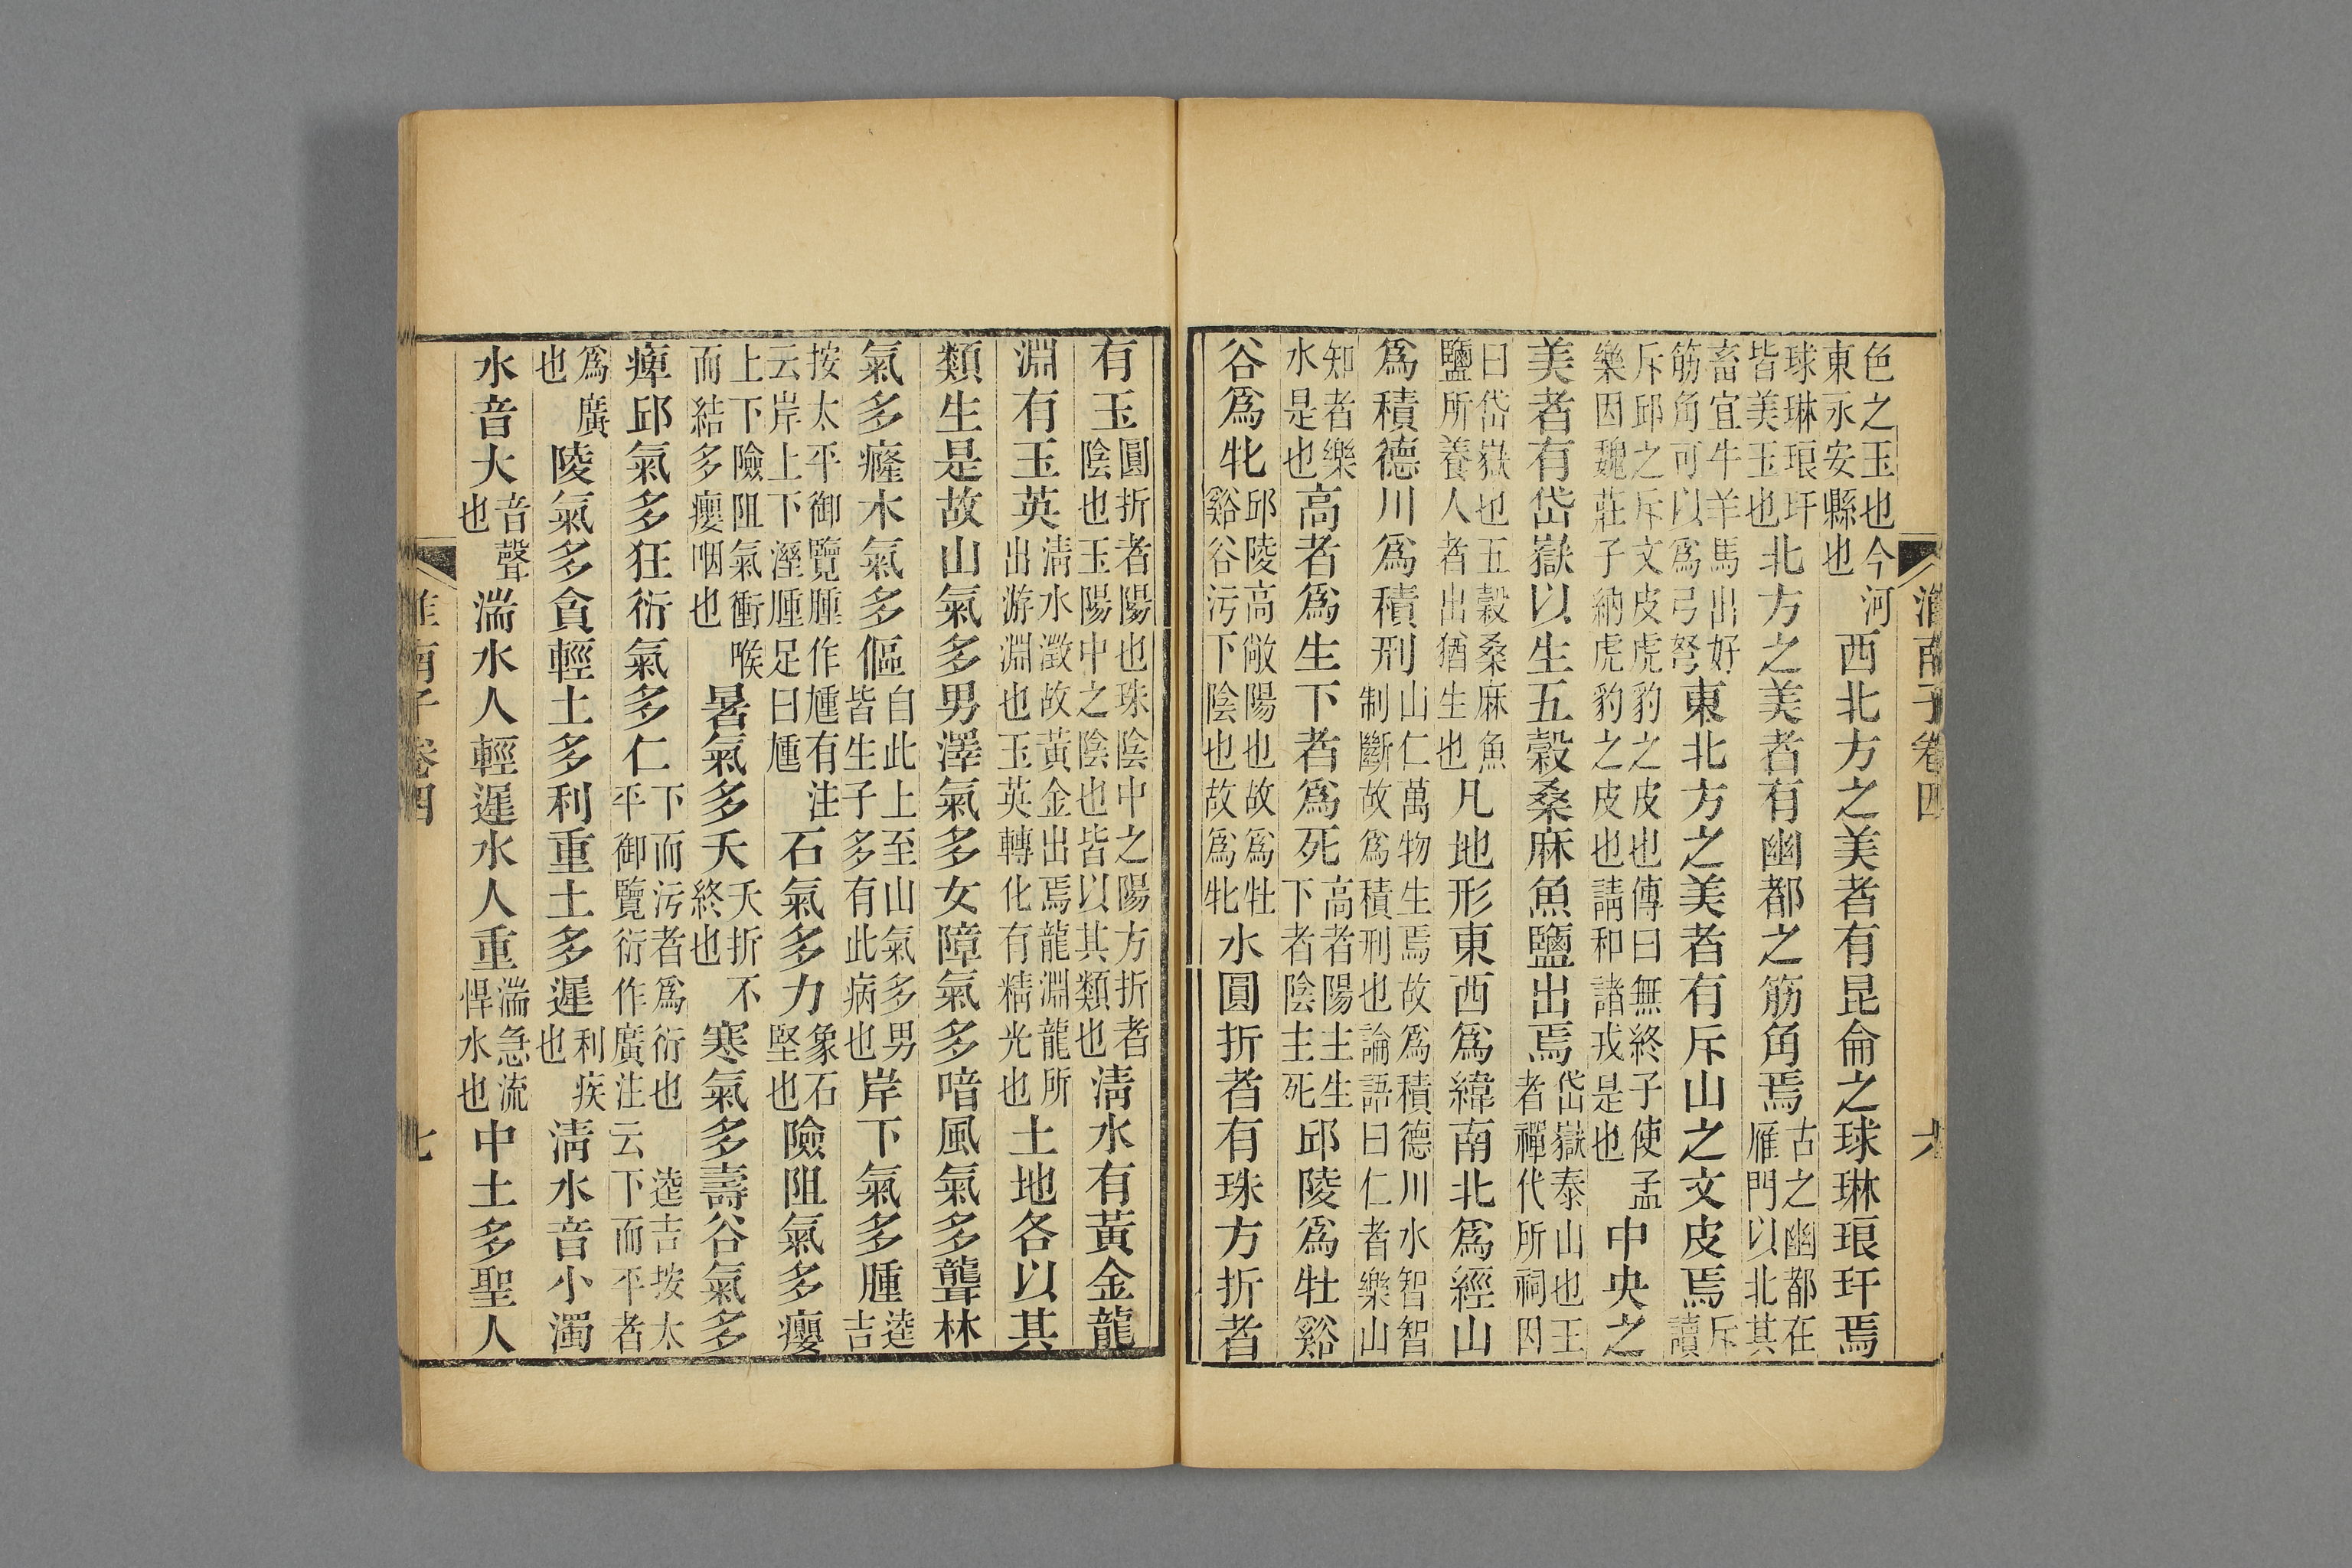 淮南子卷四 六
色之玉也今河東永安縣也西北方之美者有昆侖之球琳琅玕焉
球琳琅玕皆美玉也北方之美者有幽都之筋角焉古之幽都在雁門以北其
畜宜牛羊馬出好筋角可以爲弓弩東北方之美者有斥山之文皮焉斥讀
斥邱之斥文皮虎豹之皮也傳曰無終子使孟樂因魏莊子納虎豹之皮也請和諸戎是也中央之
美者有岱嶽以生五穀桑麻魚鹽出焉岱嶽泰山也王者禪代所祠因
曰岱嶽也五穀桑麻魚鹽所養人者出猶生也凡地形東西爲緯南北爲經山
爲積德川爲積刑山仁萬物生焉故爲積德川水智智制斷故爲積刑也論語曰仁者樂山
知者樂水是也高者爲生下者爲死高者陽主生下者陰主死邱陵爲牡谿
谷爲牝邱陵高敞陽也故爲牡谿谷污下陰也故爲牝水圓折者有珠方折者
有玉圓折者陽也珠陰中之陽方折者陰也玉陽中之陰也皆以其類也清水有黃金龍
淵有玉英清水澂故黃金出焉龍淵龍所出游淵也玉英轉化有精光也土地各以其
類生是故山氣多男澤氣多女障氣多喑風氣多聾林
氣多癃木氣多傴自此上至山氣多男皆生子多有此病也岸下氣多腫逵吉
按太平御覽腫作尰有注云岸上下溼腫足曰尰石氣多力象石堅也險阻氣多癭
上下險阻氣衝喉而結多癭咽也暑氣多夭夭折不終也寒氣多壽谷氣多
痺邱氣多狂衍氣多仁下而污者爲衍也逵吉按太平御覽衍作廣注云下而平者
爲廣也陵氣多貪輕土多利重土多遲利疾也清水音小濁
水音大音聲也湍水人輕遲水人重湍急流悍水也中土多聖人
淮南子卷四 七